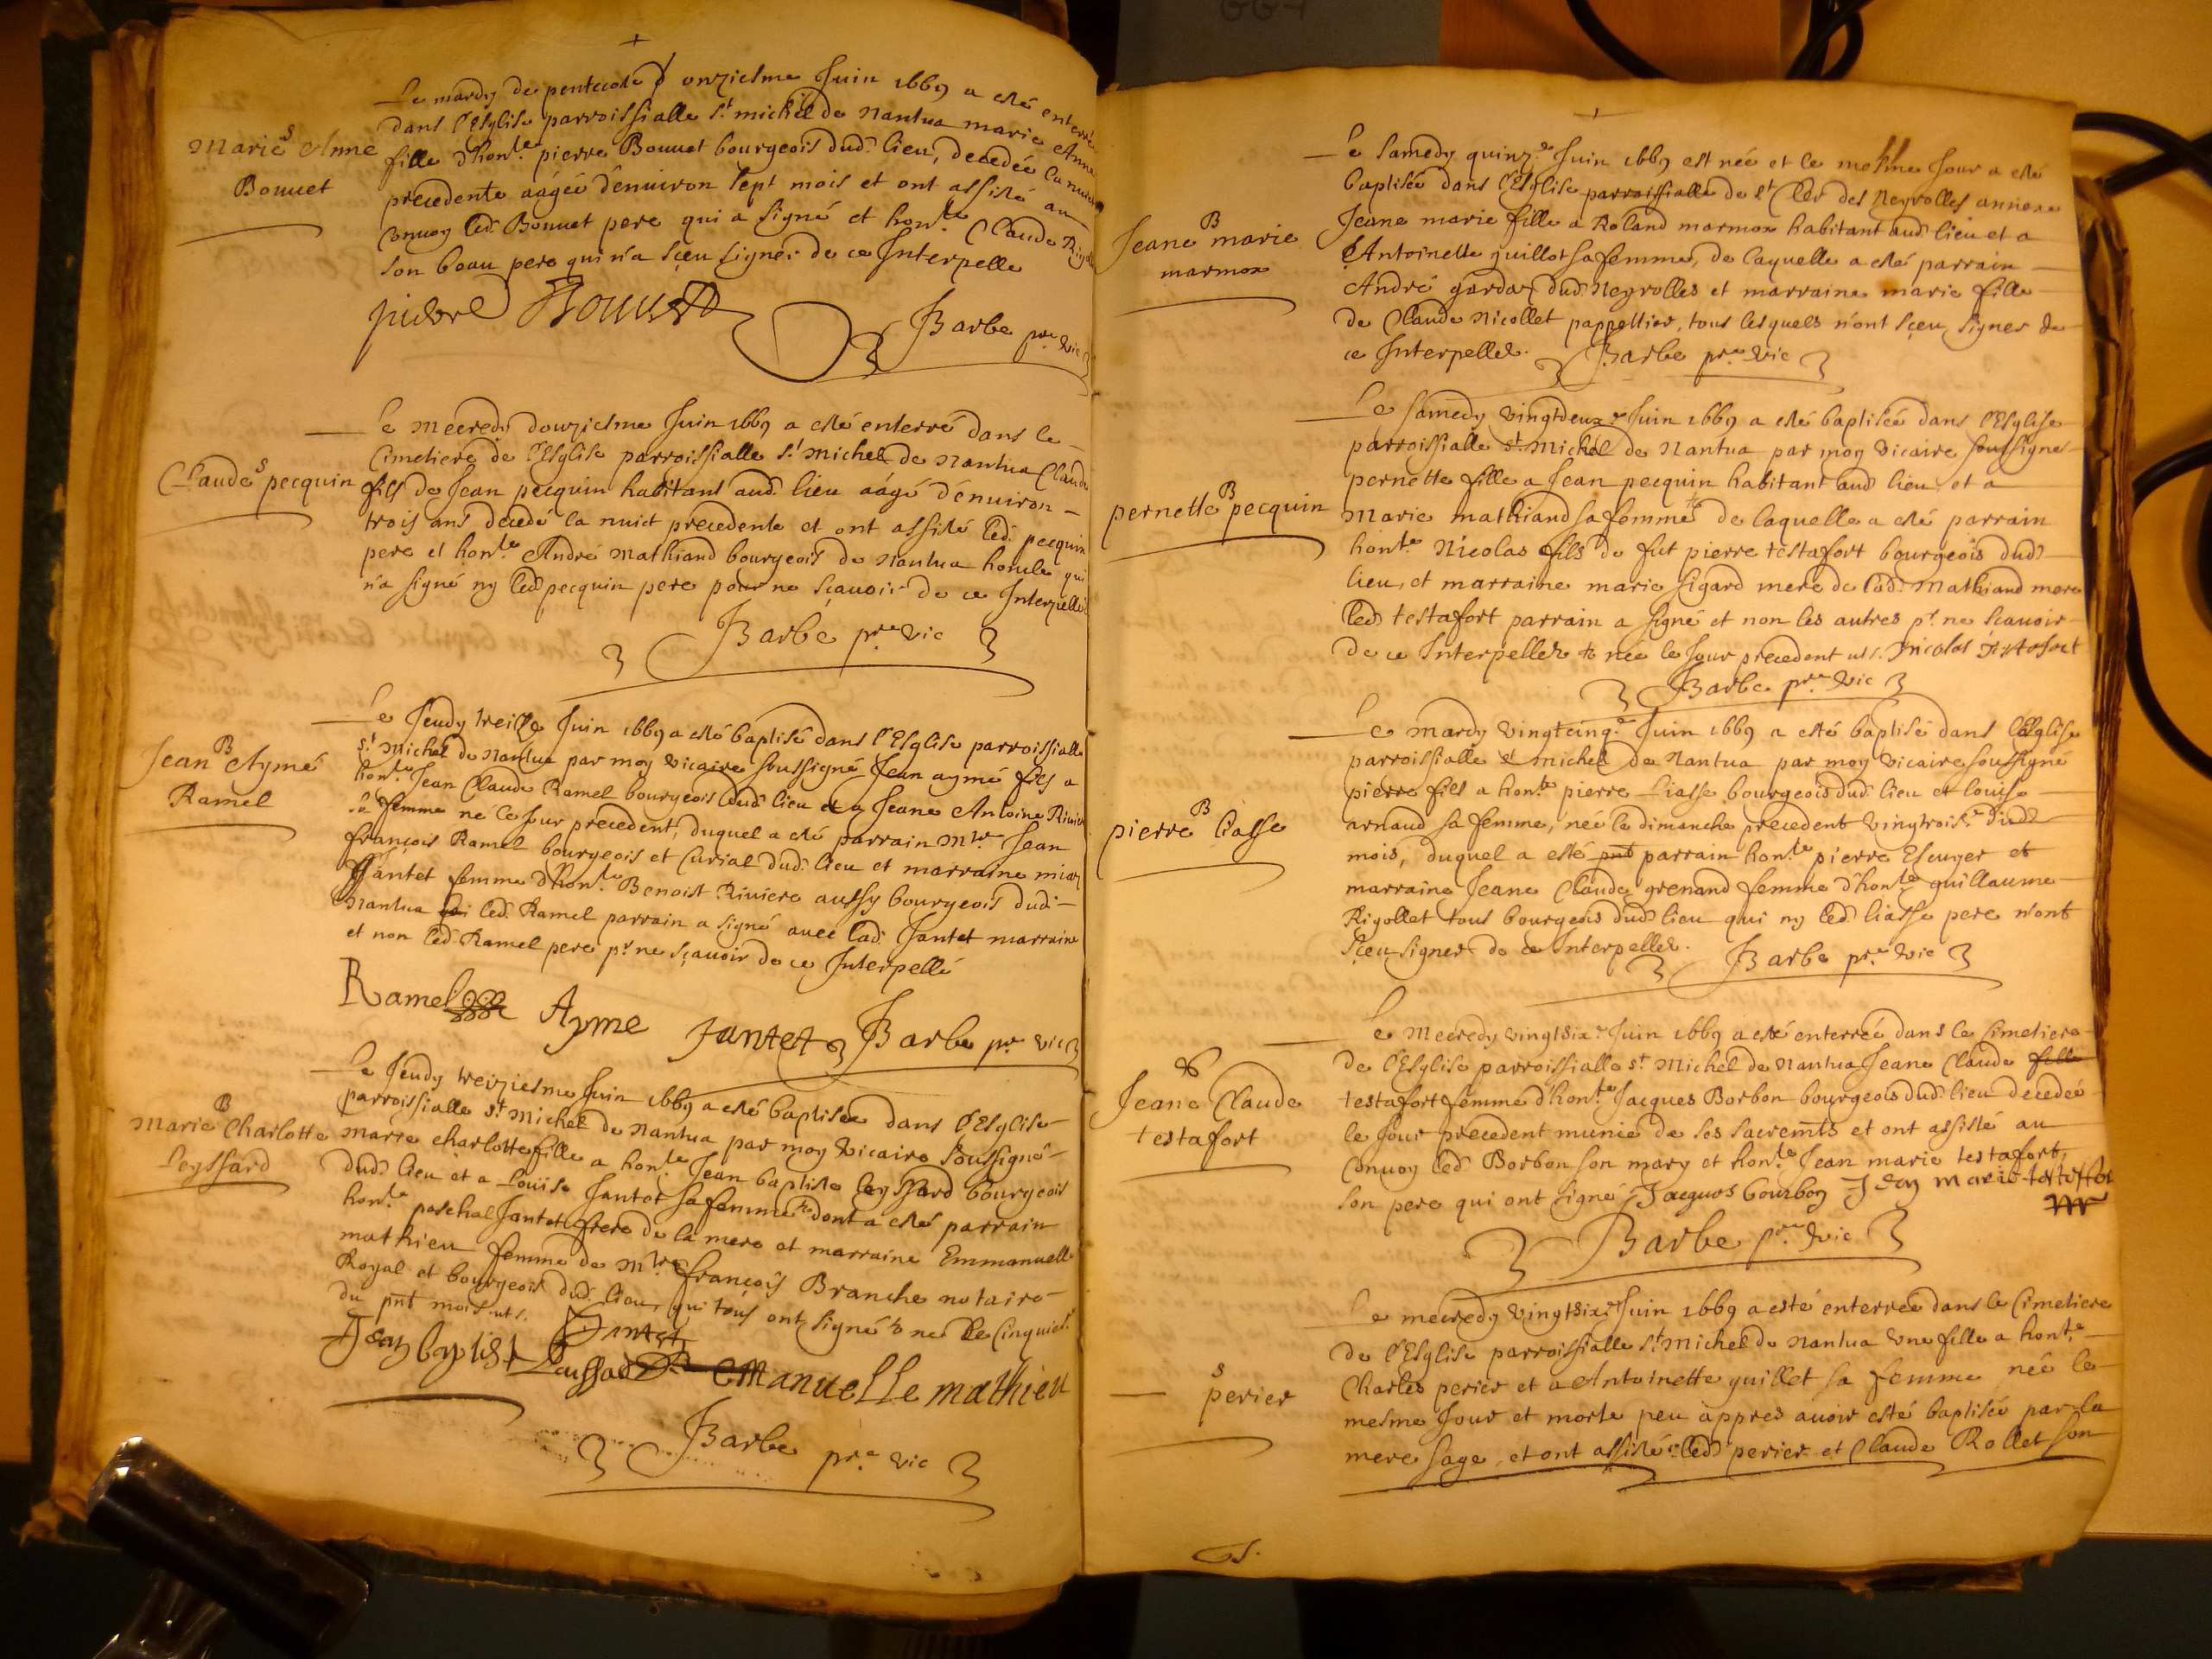 Le mardy de pentecoste onziesme Juin 1669 a esté enterrée
dans l'Esglise parroissialle st. michel de nantua marie Anne
fille d'honle. pierre Bouuet bourgeois dud. lieu, decedée la nuict
precedente aagée d'enuiron sept mois et ont assisté au
conuoy led. Bouuet pere qui a signé et honle. Claude
son beau pere qui n'a sçeu signer de ce Interpellé
S
Marie Anne
Bouuet
pierre Bouuet
Barbe pre. vic
Le mecredy douziesme Juin 1669 a esté enterré dans le
Cimetiere de l'Esglise parroissialle st. michel de nantua Claude
fils de Jean pecquin habitant aud. lieu aagé d'enuiron
trois ans decedé la nuict precedente et ont assisté led. pecquin
pere et honle. André mathiand bourgeois de nantua qui
n'a signé ny led. pecquin pere pour ne sçauoir de ce Interpellé
S
Claude pecquin
Barbe pre. vic
Le Jeudy treize Juin 1669 a esté baptisé dans l'Esglise parroissialle
st. michel de nantua par moy vicaire soussigné Jean aymé fils a
honle. Jean Claude Ramel bourgeois dud. lieu et a Jeane Antoine
sa femme né le jour precedent, duquel a esté parrain mre. Jean
françois Ramel bourgeois et Curial dud. lieu et marraine
Jantet femme d'honle. Benoist Riuiere aussy bourgeois dud.
nantua led. Ramel parrain a signé auec lad. Jantet marraine
et non led. Ramel pere pr. ne sçauoir de ce Interpellé
B
Jean Aymé
Ramel
Ramel Ayme Jantet Barbe pre. vic
Le Jeudy treiziesme Juin 1669 a esté baptisée dans l'Esglise
parroissialle st. michel de nantua par moy vicaire soussigné
marie charlotte fille a honle. Jean baptiste leyssard bourgeois
dud. lieu et a Louise Jantet sa femme dont a esté parrain
honle. paschal Jantet frere de la mere et marraine Emmanuelle
mathieu femme de mre. françois Branche notaire
Royal et bourgeois dud. lieu, qui tous ont signé né le cinquies.
du pnt mois uts.
B
Marie Charlotte
Leyssard
Jean baptiste Jantet
Leyssard Emanuelle mathieu
Barbe pre. vic
Le Samedy quinze. Juin 1669 est née et le mesme Jour a esté
baptisée dans l'Esglise parroissialle de st Cler des neyrolles annexe
Jeane marie fille a Roland marmon habitant aud. lieu et a
Antoinette guillot sa femme, de laquelle a esté parrain
André gardaz dud. neyrolles et marraine marie fille
de Claude nicollet pappettier, tous lesquels n'ont sçeu signer de
ce Interpellez. Barbe pre. vic
B
Jeane marie
marmon
Le samedy vingtdeux.e Juin 1669 a esté baptisée dans l'Esglise
parroissialle st. michel de nantua par moy vicaire soussigné
pernette fille a Jean pecquin habitant aud. lieu et a
marie mathiand sa femme de laquelle a esté parrain
honle. nicolas fils de fut pierre testafort bourgeois dud.
lieu, et marraine marie sigard mere de lad. mathiand mere
led. testafort parrain a signé et non les autres pr. ne sçauoir
de ce Interpellez née le Jour precedent uts. nicolas testafort
B
pernette pecquin
Barbe pre. vic
Le mardy vingtcinq.e Juin 1669 a esté baptisé dans l'Esglise
parroissialle st michel de nantua par moy vicaire soussigné
pierre fils a honle. pierre Liasse bourgeois dud. lieu et louise
arnaud sa femme, né le dimanche precedent vingtrois.e dud.
mois, duquel a esté pnt parrain honle. pierre Escuyer et
marraine Jeane Claude grenand femme d'honle. guillaume
Rigollet tous bourgeois dud. lieu qui ny led. liasse pere n'ont
sçeu signer de ce Interpellez. Barbe pre. vic
B
pierre Liasse
Le mecredy vingtsix.e Juin 1669 a esté enterrée dans le Cimetiere
de l'Esglise parroissialle st. michel de nantua Jeane Claude fille
testafort femme d'honle. Jacques Borbon bourgeois dud. lieu decedée
le Jour precedent munie de ses sacremts et ont assisté au
conuoy led. Borbon son mary et honle. Jean marie testafort,
son pere qui ont signé Jacques bourbon Jean marie testaffort
Jeane Claude
testafort
Barbe pre. vic
Le mecredy vingtsix.e Juin 1669 a esté enterrée dans le Cimetiere
de l'Esglise parroissialle st. michel de nantua une fille a honle.
Charles perier et a Antoinette guillet sa femme née le
mesme Jour et morte peu appres auoir esté baptisée par la
mere sage, et ont assisté led. perier et Claude Rollet son
S
perier